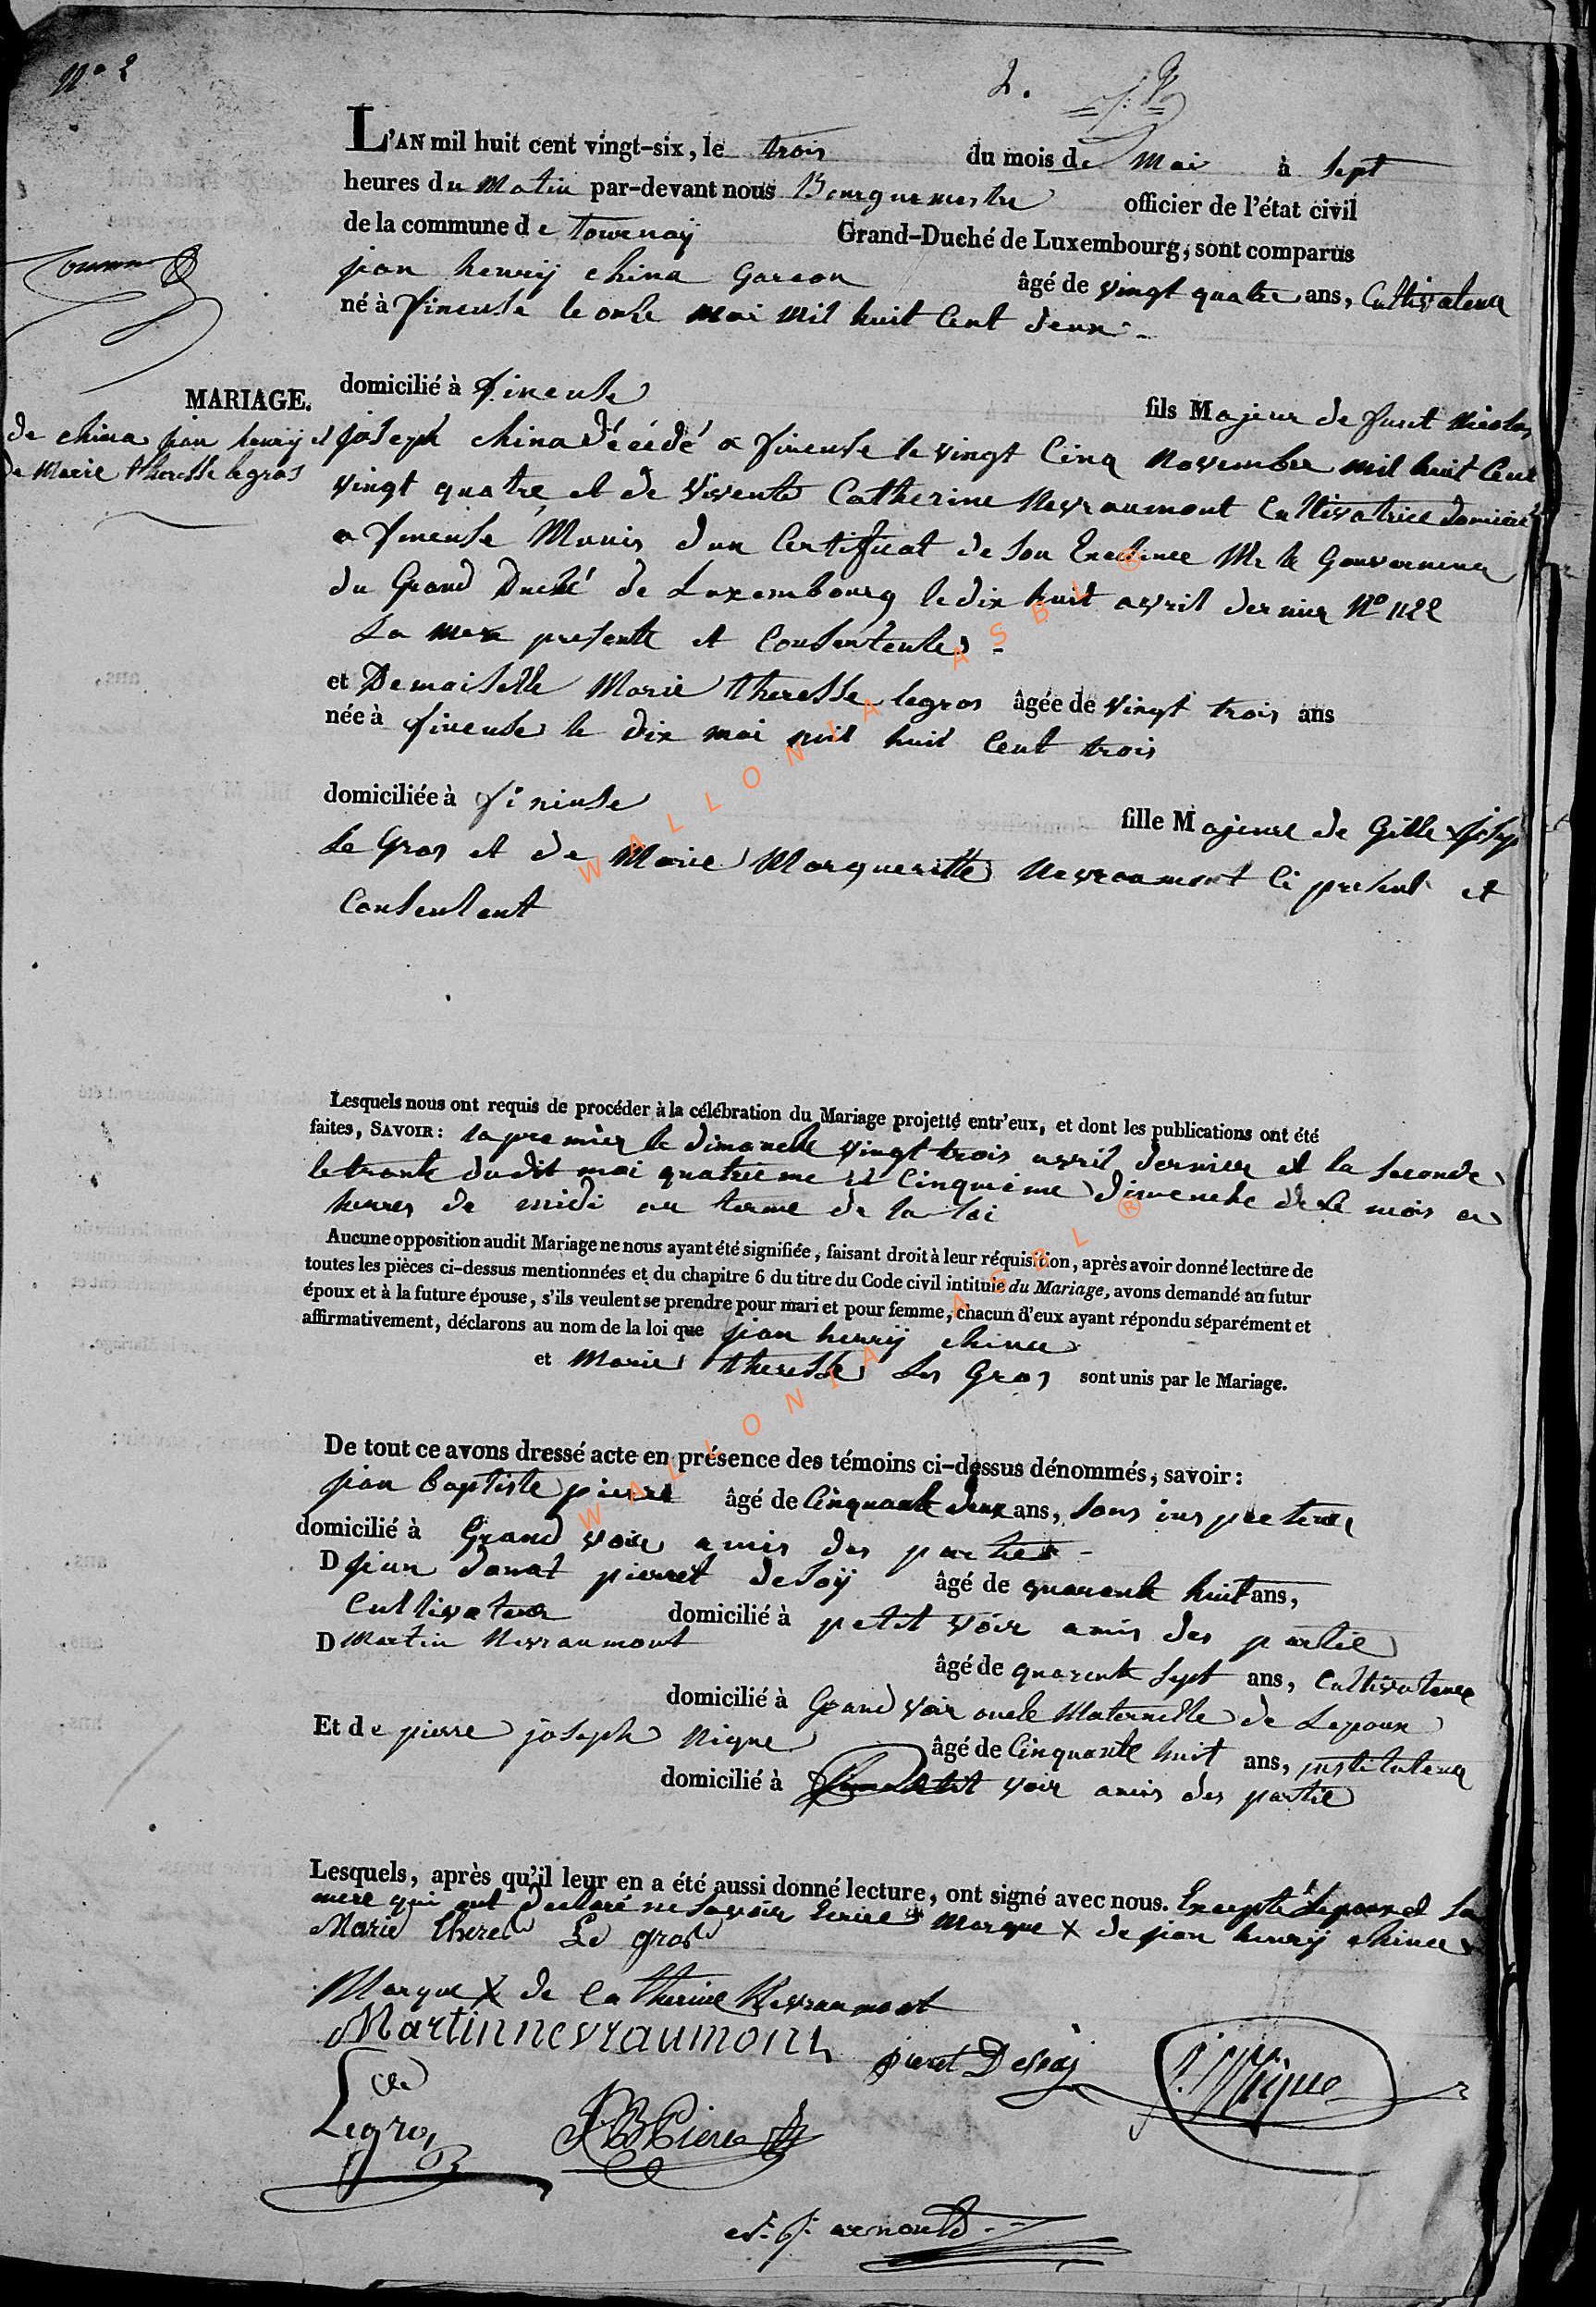 N° 2
2.
L'AN mil huit cent vingt-six, le trois du mois de Mai à sept
heures du Matin par-devant nous Bourguemestre officier de l'état civil
de la commune de tournay Grand-Duché de Luxembourg, sont comparus
jean henrÿ china Garcon âgé de vingt quatre ans, Cultivateur
né à fineuse le onse mai mil huit Cent deux
domicilié à fineuse fils Majeur de funt Nicolas
MARIAGE.
de china jean henrÿ et
de Marie theresse legros
joseph china décédé a fineuse le vingt Cinq November mil huit Cent
vingt quatre et de vivente Catherine Nevraumont Cultivatrice
a fineuse Munis d'un Certificat de son Mr le Gouverneur
du Grand Duché de Luxembourg le dix huit avril dernier N° 1122
La mere presente et Consentente
et Demoiselle Marie theresse legros âgée de vingt trois ans
née à fineuse le dix mai mil huit Cent trois
domiciliée à fineuse fille Majeure de Gille Josep
Le Gros et de Marie Margueritte Nevraumont Ci present et
Consentent
Lesquels nous ont requis de procéder à la célébration du Mariage projetté entr'eux, et dont les publications ont été
faites, SAVOIR: la premier le dimanche vingt trois avril dernier et la seconde
le trente dudit moi quatrieme et Cinquieme dimenche de Ce mois a
heures de midi au terme de la loi
Aucune opposition audit Mariage ne nous ayant été signifiée, faisant droit à leur réquisition, après avoir donné lecture de
toutes les pièces ci-dessus mentionnées et du chapitre 6 du titre du Code civil intitulé du Mariage, avons demandé au futur
époux et à la future épouse, s'ils veulent se prendre pour mari et pour femme, chacun d'eux ayant répondu séparément et
affirmativement, déclarons au nom de la loi que jean henrÿ china
et Marie theresse Le Gros sont unis par le Mariage.
De tout ce avons dressé acte en présence des témoins ci-dessus dénommés, savoir:
jean baptiste pierre âgé de Cinquante deux ans, sous inspecteur
domicilié à Grand voir amis des parties
D jean donat pierret desoÿ âgé de quarente huit ans,
Cultivateur domicilié à petit voir amis des partie
D Martin Nevraumont âgé de quarente sept ans, Cultivateur
domicilié à Grand voir oncle Maternelle de Lepoux
Et de pierre joseph Nique âgé de Cinquante huit ans, instituteur
domicilié à voir amis des partie
Lesquels, après qu'il leur en a été aussi donné lecture, ont signé avec nous. Excepté Lepoux et sa
mere qui ont declaré ne savoir Ecrire Marque X de jean henrÿ china
Marie Le gros
Marque X de Catherine Nevraumont
Martin nevraumont
pierret Desoÿ
Nique
Legros
JB Pierre
arnould
WALLONIA ASBL ®
WALLONIA ASBL ®